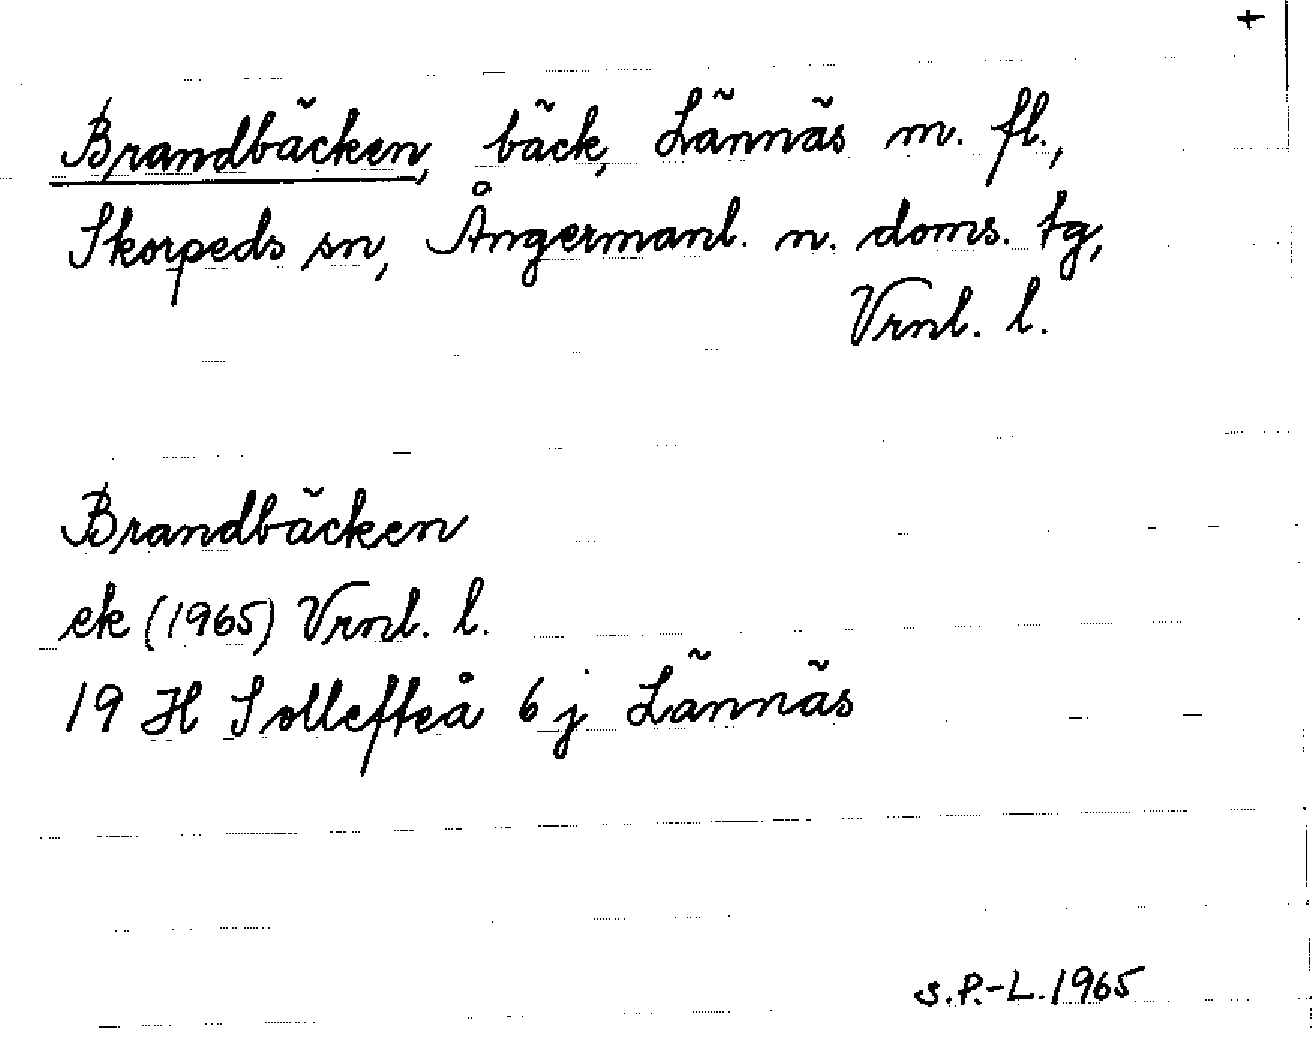 +
Brandbäcken, bäck, Lännäs m. fl.,
Skorpeds sn, Ångermanl. n. doms. tg,
Vrnl. l.
Brandbäcken
ek (1965) Vrnl. l.
19 H Sollefteå 6 j Lännäs
S.P.-L. 1965